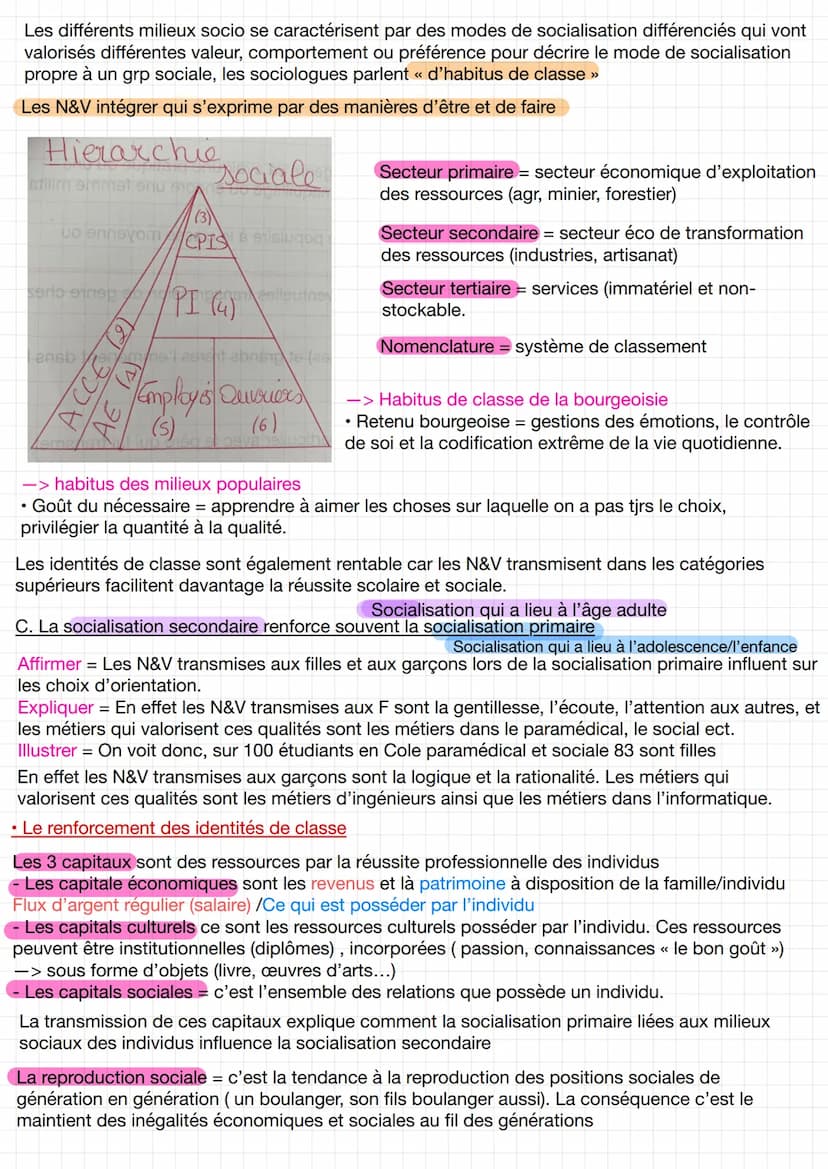 Les différents milieux socio se caractérisent par des modes de socialisation différenciés qui vont
valorisés différentes valeur, comportement ou préférence pour décrire le mode de socialisation
propre à un grp sociale, les sociologues parlent « d'habitus de classe »
Les N&V intégrer qui s'exprime par des manières d'être et de faire
Hierarchie
sociale
(3)
CPIS
PI (4)
ACCE (2)
AE (1)
Employés
(5)
Ouvriers
(6)
Secteur primaire = secteur économique d'exploitation
des ressources (agr, minier, forestier)
Secteur secondaire = secteur éco de transformation
des ressources (industries, artisanat)
Secteur tertiaire = services (immatériel et non-
stockable.
Nomenclature = système de classement
—> Habitus de classe de la bourgeoisie
• Retenu bourgeoise = gestions des émotions, le contrôle
de soi et la codification extrême de la vie quotidienne.
—> habitus des milieux populaires
• Goût du nécessaire = apprendre à aimer les choses sur laquelle on a pas tjrs le choix,
privilégier la quantité à la qualité.
Les identités de classe sont également rentable car les N&V transmisent dans les catégories
supérieurs facilitent davantage la réussite scolaire et sociale.
Socialisation qui a lieu à l'âge adulte
C. La socialisation secondaire renforce souvent la socialisation primaire
Socialisation qui a lieu à l'adolescence/l'enfance
Affirmer = Les N&V transmises aux filles et aux garçons lors de la socialisation primaire influent sur
les choix d'orientation.
Expliquer = En effet les N&V transmises aux F sont la gentillesse, l'écoute, l'attention aux autres, et
les métiers qui valorisent ces qualités sont les métiers dans le paramédical, le social ect.
Illustrer = On voit donc, sur 100 étudiants en Cole paramédical et sociale 83 sont filles
En effet les N&V transmises aux garçons sont la logique et la rationalité. Les métiers qui
valorisent ces qualités sont les métiers d'ingénieurs ainsi que les métiers dans l'informatique.
• Le renforcement des identités de classe
Les 3 capitaux sont des ressources par la réussite professionnelle des individus
- Les capitale économiques sont les revenus et là patrimoine à disposition de la famille/individu
Flux d'argent régulier (salaire) /Ce qui est posséder par l'individu
- Les capitals culturels ce sont les ressources culturels posséder par l'individu. Ces ressources
peuvent être institutionnelles (diplômes) , incorporées ( passion, connaissances « le bon goût »)
—> sous forme d'objets (livre, œuvres d'arts…)
- Les capitals sociales = c'est l'ensemble des relations que possède un individu.
La transmission de ces capitaux explique comment la socialisation primaire liées aux milieux
sociaux des individus influence la socialisation secondaire
La reproduction sociale = c'est la tendance à la reproduction des positions sociales de
génération en génération ( un boulanger, son fils boulanger aussi). La conséquence c'est le
maintient des inégalités économiques et sociales au fil des générations